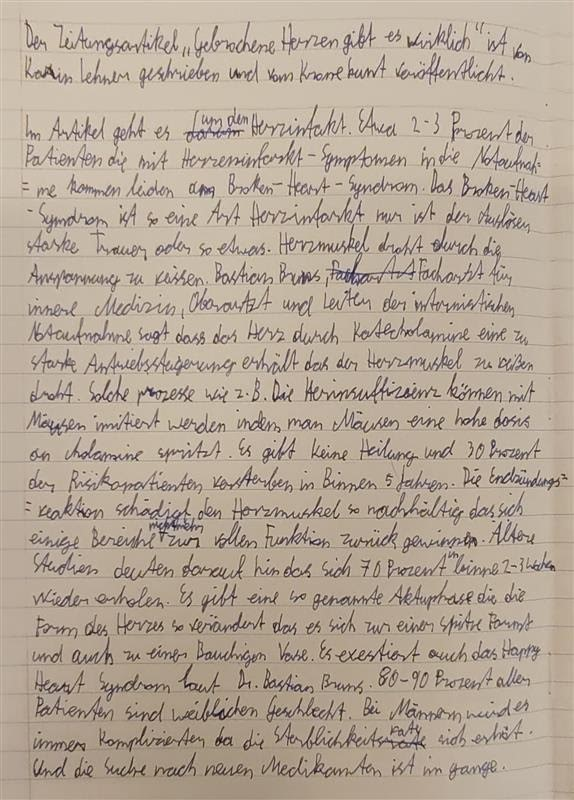 Der Zeitungsartikel „Gebrochene Herzen gibt es wirklich" ist von
Karin Lehner geschrieben und vom Kronebunt veröffentlicht.
Im Artikel geht es um den Herzinfakt. Etwa 2-3 Prozent der
Patienten die mit Herzeninfarkt-Symptomen in die Notaufnah-
=me kommen leiden am Broken-Heart-Syndrom. Das Broken-Heart
-Symdrom ist so eine Art Herzinfarkt nur ist der Auslöser
starke Trauer oder so etwas. Herzmuskel droht durch die
Anspannung zu reissen. Bastian Bruns, Facharzt für
innere Medizin, Oberartzt und Leiter der internistischen
Notaufnahme sagt dass das Herz durch Katecholamine eine zu
starke Antriebssteigerung erhält das der Herzmuskel zu reißen
droht. Solche prozesse wie z.B. Die Herinsuffizienz können mit
Mäusen imitiert werden indem man Mäusen eine hohe dosis
an cholamine spritzt. Es gibt keine Heilung und 30 Prozent
der Risikopatienten versterben in Binnen 5 Jahren. Die Endzündungs=
=reaktion schädigt den Herzmuskel so nachhaltig das sich
einige Bereiche nichtmehr zur vollen Funktion zurück gewinnen. Ältere
Studien deuten darauf hin das sich 70 Prozent in binne 2-3 Wochen
wieder erholen. Es gibt eine so genannte Aktuphase die die
Form des Herzes so verändert das es sich zur einer spitze Formt
und auch zu einer Bauchigen Vase. Es exestiert auch das Happy
Heart Syndrom laut Dr. Bastian Bruns. 80-90 Prozent aller
Patienten sind weiblichen Geschlecht. Bei Männern wird es
immer Komplizierter da die Sterblichkeitsrate sich erhöt.
Und die Suche nach neuen Medikamten ist im gange.